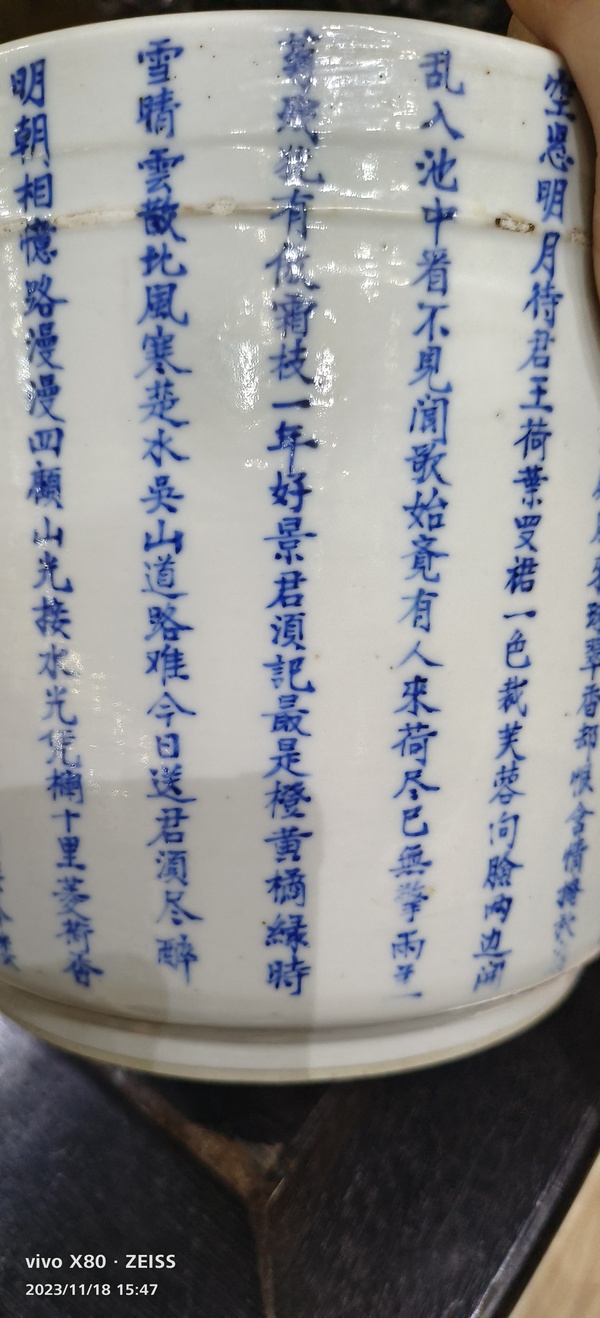 珠翠香却恨含情掩秋
空悬明月待君王荷葉罗裙一色裁芙蓉向臉两边開
乱入池中看不見聞歌始覓有人來荷尽已無擎雨
菊残犹有傲霜枝一年好景君須記最是橙黄橘緑時
雪晴雲散北風寒楚水吳山道路难今日送君須尽醉
明朝相憶路漫漫四顧山光接水光凭欄十里芰荷香
vivo X80 · ZEISS
2023/11/18 15:47